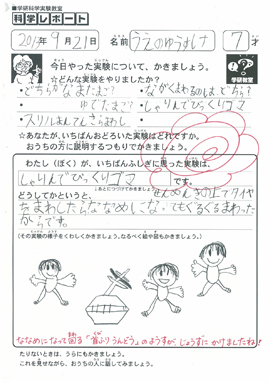 ■学研科学実験教室
科学レポート
2013年9月21日 名前 うえのゆうすけ 7才
今日やった実験について、かきましょう。
☆どんな実験をやりましたか?
・どちらがなまたまご? ・ながくまわるのは、どちら?
ゆでたまご? ・しゃりんでびっくりゴマ
・スリルまんてんさらまわし
☆あなたが、いちばんおどろいた実験はどれですか。
おうちの方に説明するつもりでかきましょう。
わたし(ぼく)が、いちばんふしぎに思った実験は、
しゃりんでびっくりゴマ です。
どうしてかというと、
ちまわしたらななめになってもぐるぐるまわった
からです。
(その実験の様子をくわしくかきましょう。なるべく絵や図もかきましょう。)
ななめになって回る「首ふりうんどう」のようすが、じょうずにかけましたね!
たりないときは、うらにもかきましょう。
これを見せながら、おうちの人に話してみましょう。